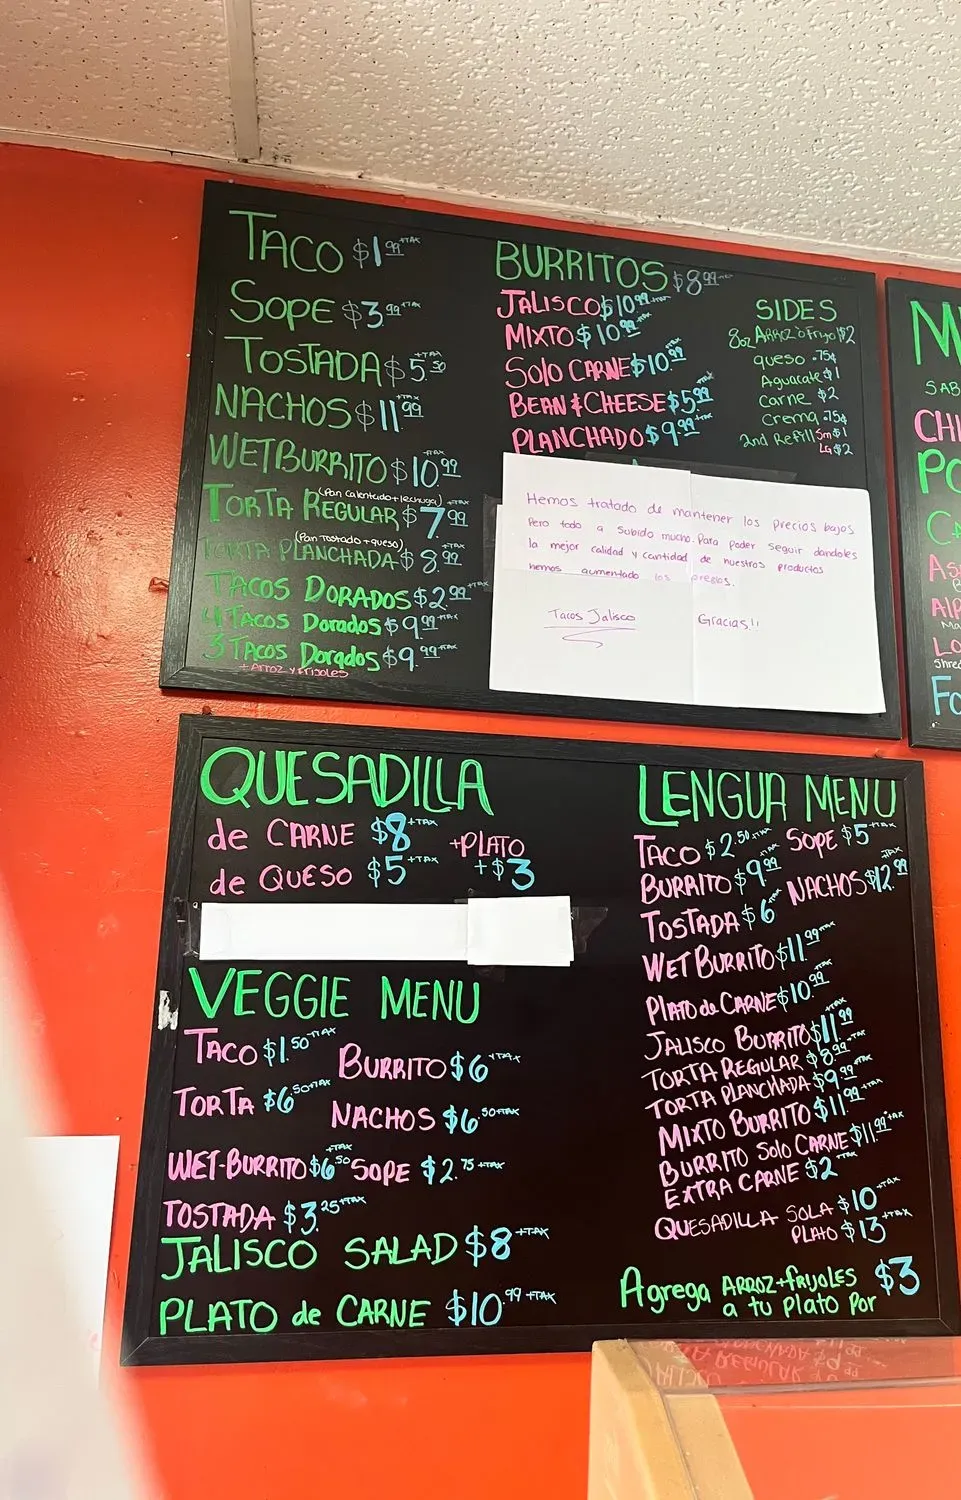 TACO $1.99 +TAX
SOPE $3.99 +TAX
TOSTADA $5.50 +TAX
NACHOS $11.99 +TAX
WET BURRITO $10.99 +TAX
(Pan calentado + lechuga)
TORTA REGULAR $7.99 +TAX
(Pan Tostado + queso)
TORTA PLANCHADA $8.99 +TAX
TACOS DORADOS $2.99 +TAX
4 TACOS Dorados $9.99 +TAX
3 TACOS Dorados $9.99 +TAX
+ Arroz y frijoles
BURRITOS $8.99
JALISCO $10.99
MIXTO $10.99
SOLO CARNE $10.99
BEAN & CHEESE $5.99 +TAX
PLANCHADO $9.99 +TAX
SIDES
8oz ARROZ ò Frijol $2
queso .75¢
Aguacate $1
carne $2
Crema .75¢
2nd Refill Sm $1
LG $2
Hemos tratado de mantener los precios bajos
Pero todo a subido mucho. Para poder seguir dandoles
la mejor calidad y cantidad de nuestros productos
hemos aumentado los precios.
Tacos Jalisco
Gracias!!
CHI
QUESADILLA
de CARNE $8 +TAX
de QUESO $5 +TAX
+PLATO
+$3
VEGGIE MENU
TACO $1.50 +TAX
BURRITO $6 +TAX
TORTA $6.50 +TAX
NACHOS $6.50 +TAX
WET-BURRITO $6.50 +TAX
SOPE $2.75 +TAX
TOSTADA $3.25 +TAX
JALISCO SALAD $8 +TAX
PLATO de CARNE $10.99 +TAX
LENGUA MENU
TACO $2.50 +TAX
SOPE $5 +TAX
BURRITO $9.99 +TAX
NACHOS $12.99 +TAX
TOSTADA $6 +TAX
WET BURRITO $11.99 +TAX
PLATO de CARNE $10.99 +TAX
JALISCO BURRITO $11.99 +TAX
TORTA REGULAR $8.99 +TAX
TORTA PLANCHADA $9.99 +TAX
MIXTO BURRITO $11.99 +TAX
BURRITO SOLO CARNE $11.99 +TAX
EXTRA CARNE $2 +TAX
QUESADILLA SOLA $10 +TAX
PLATO $13 +TAX
Agrega ARROZ + frijoles $3
a tu plato Por